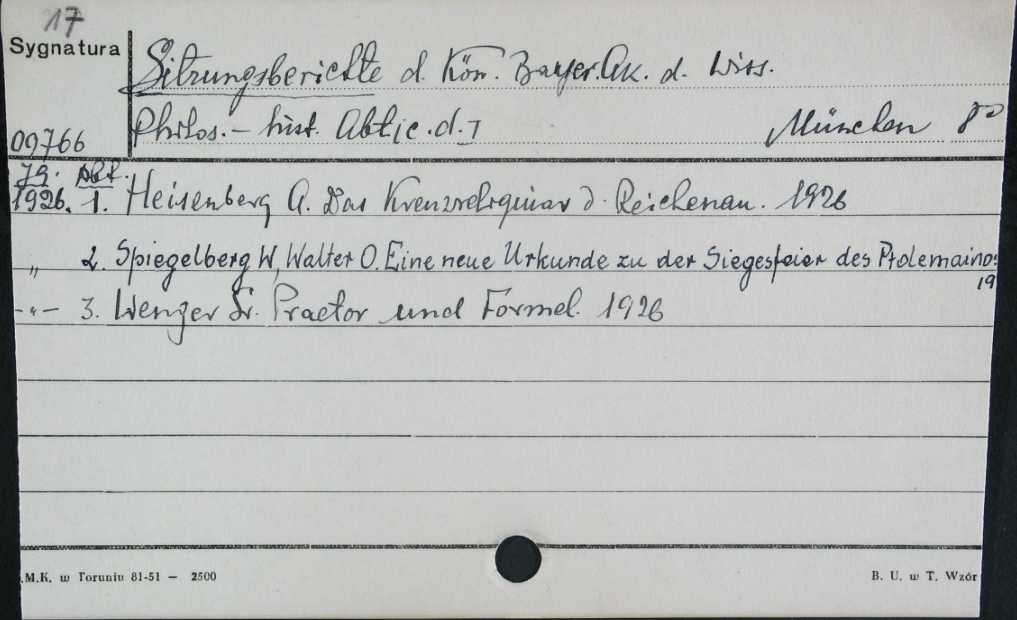 17
Sygnatura
Sitzungsberichte d. Kön. Bayer. Ak. d. Wiss.
Philos.- hist. München 8°
09766
Jg. Abt.
1926. 1. Heisenberg A. Das Kreuzreliquiar d. Reichenau. 1926
„ 2. Spiegelberg W, Walter O. Eine neue Urkunde zu der Siegesfeier des Ptolemaios
19
-„- 3. Wenger Praetor und Formel. 1926
.M.K. w Toruniu 81-51 — 2500
B. U. w T. Wzór